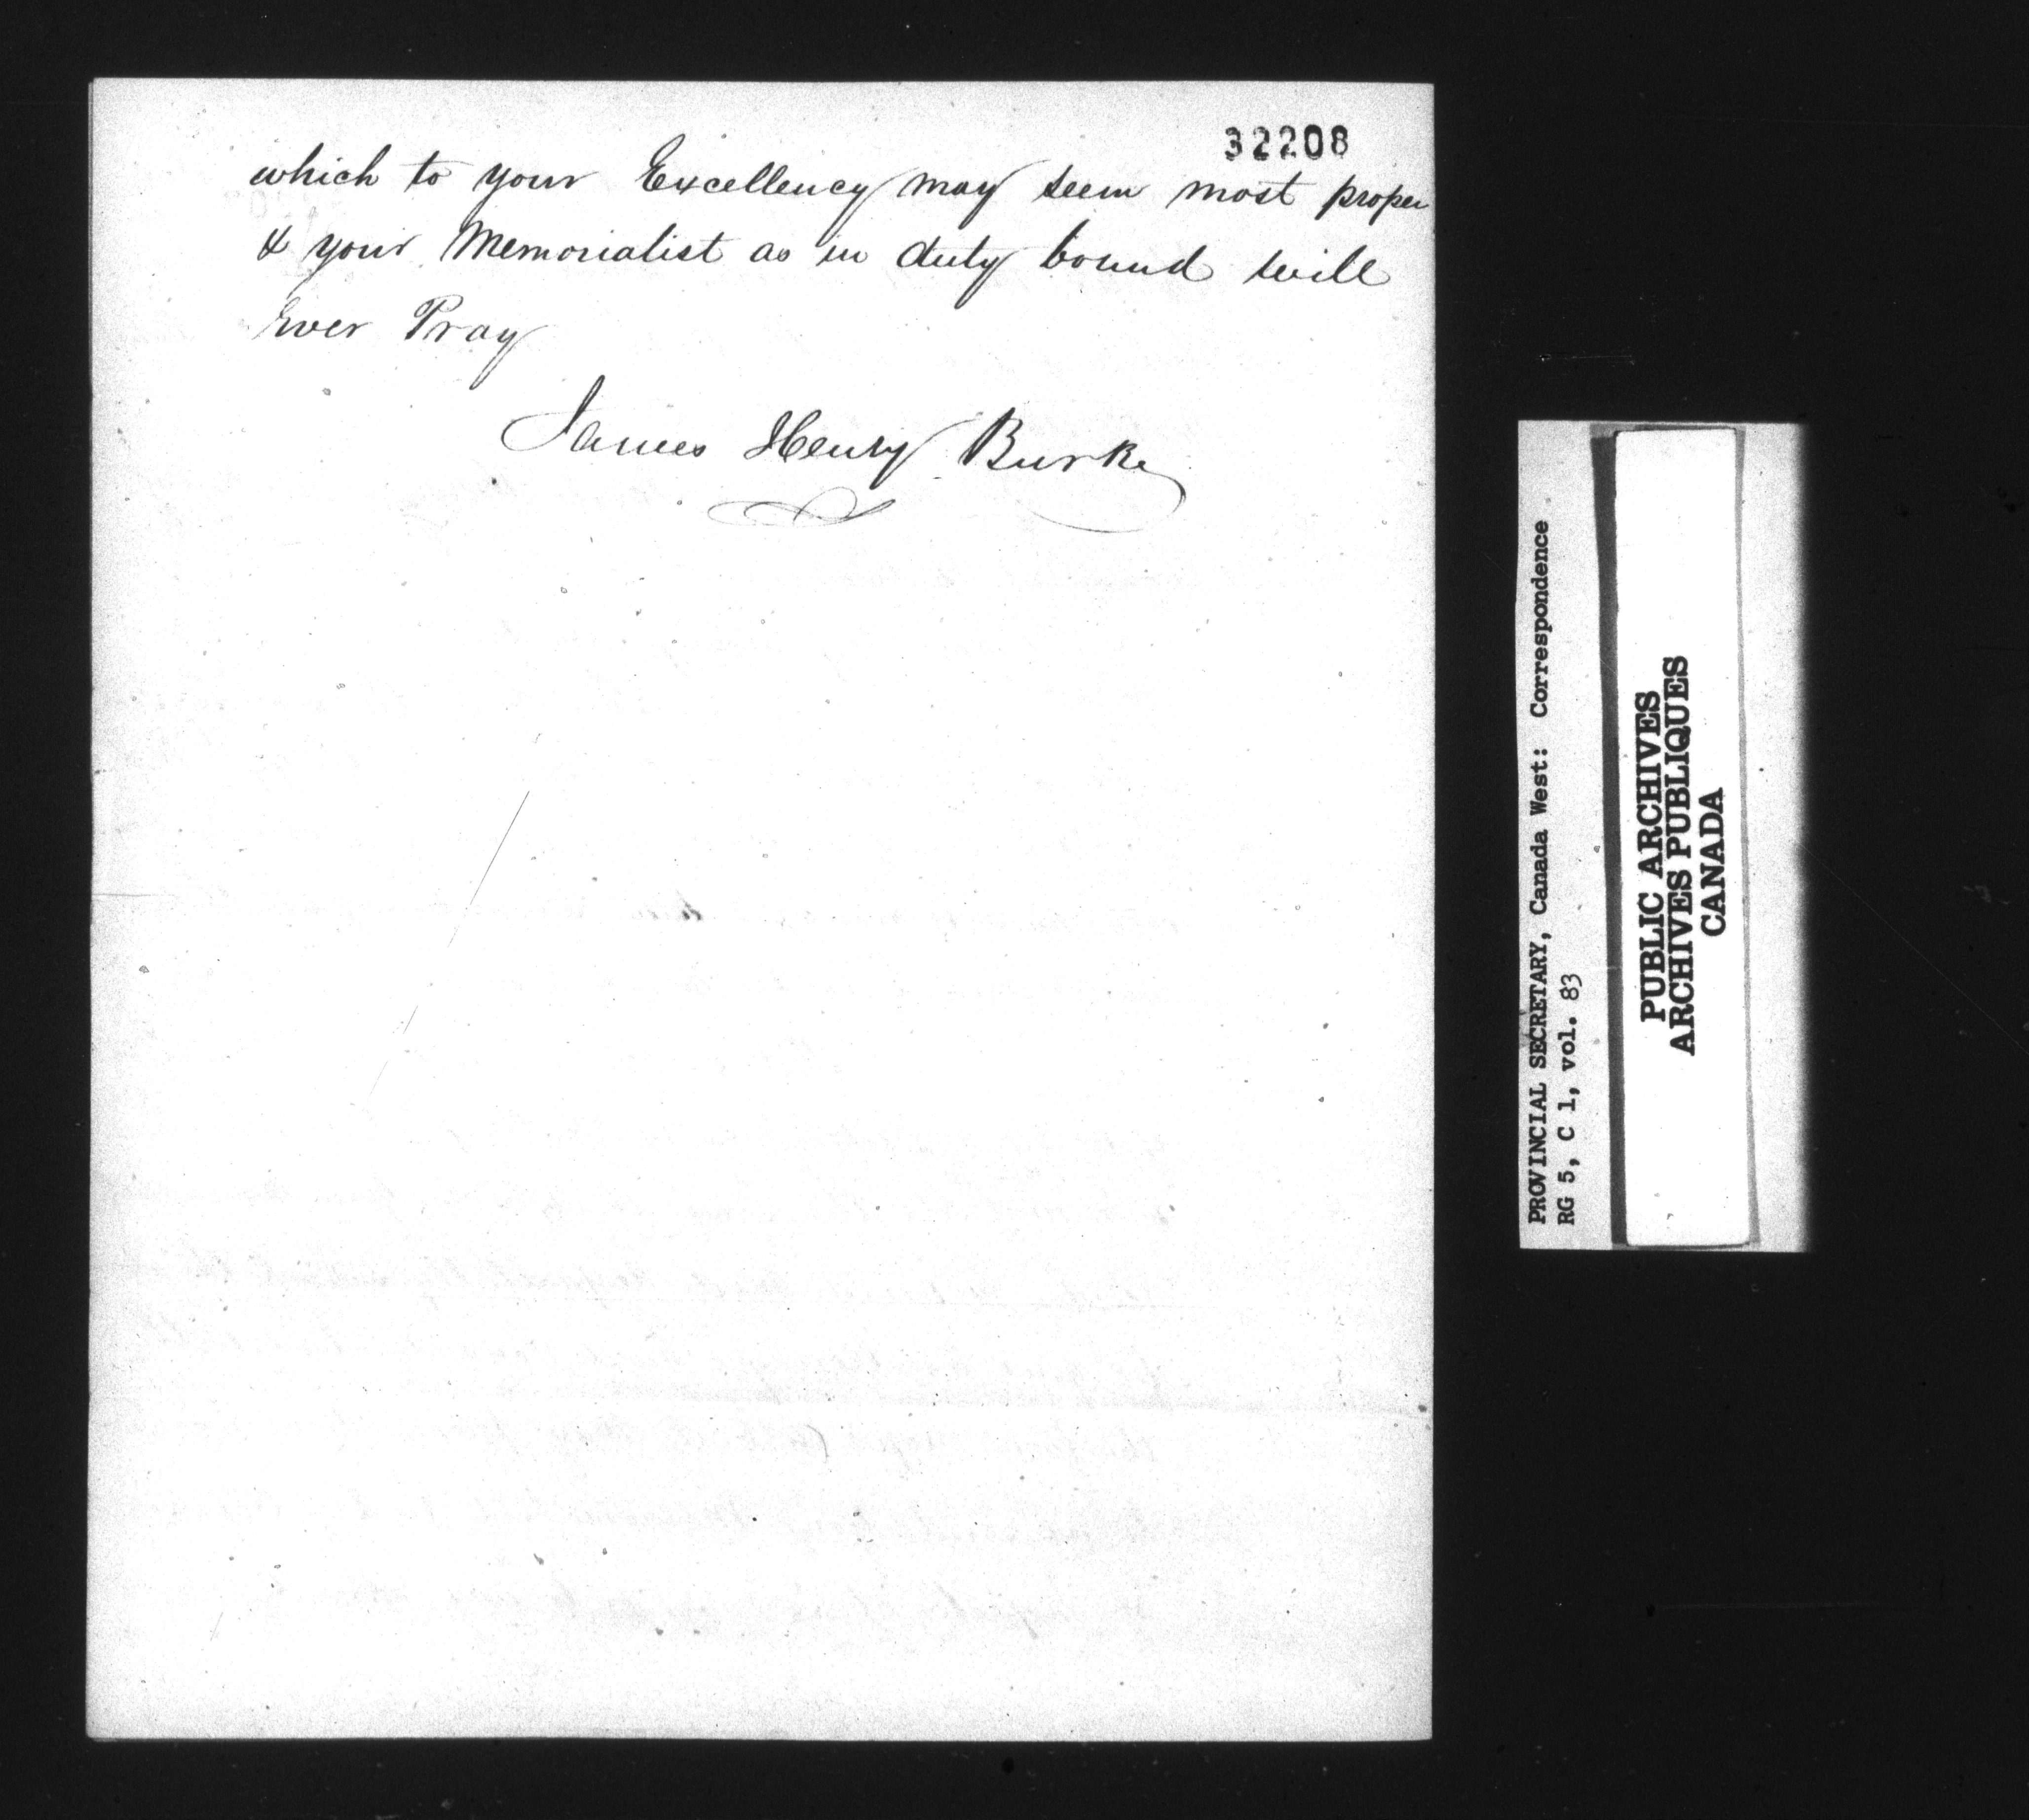 32208
which to your Excellency may seem most proper
& your Memorialist as in duty bound will
Ever Pray
James Henry Burke
PROVINCIAL SECRETARY, Canada West: Correspondence
RG 5, C 1, vol. 83
PUBLIC ARCHIVES
ARCHIVES PUBLIQUES
CANADA